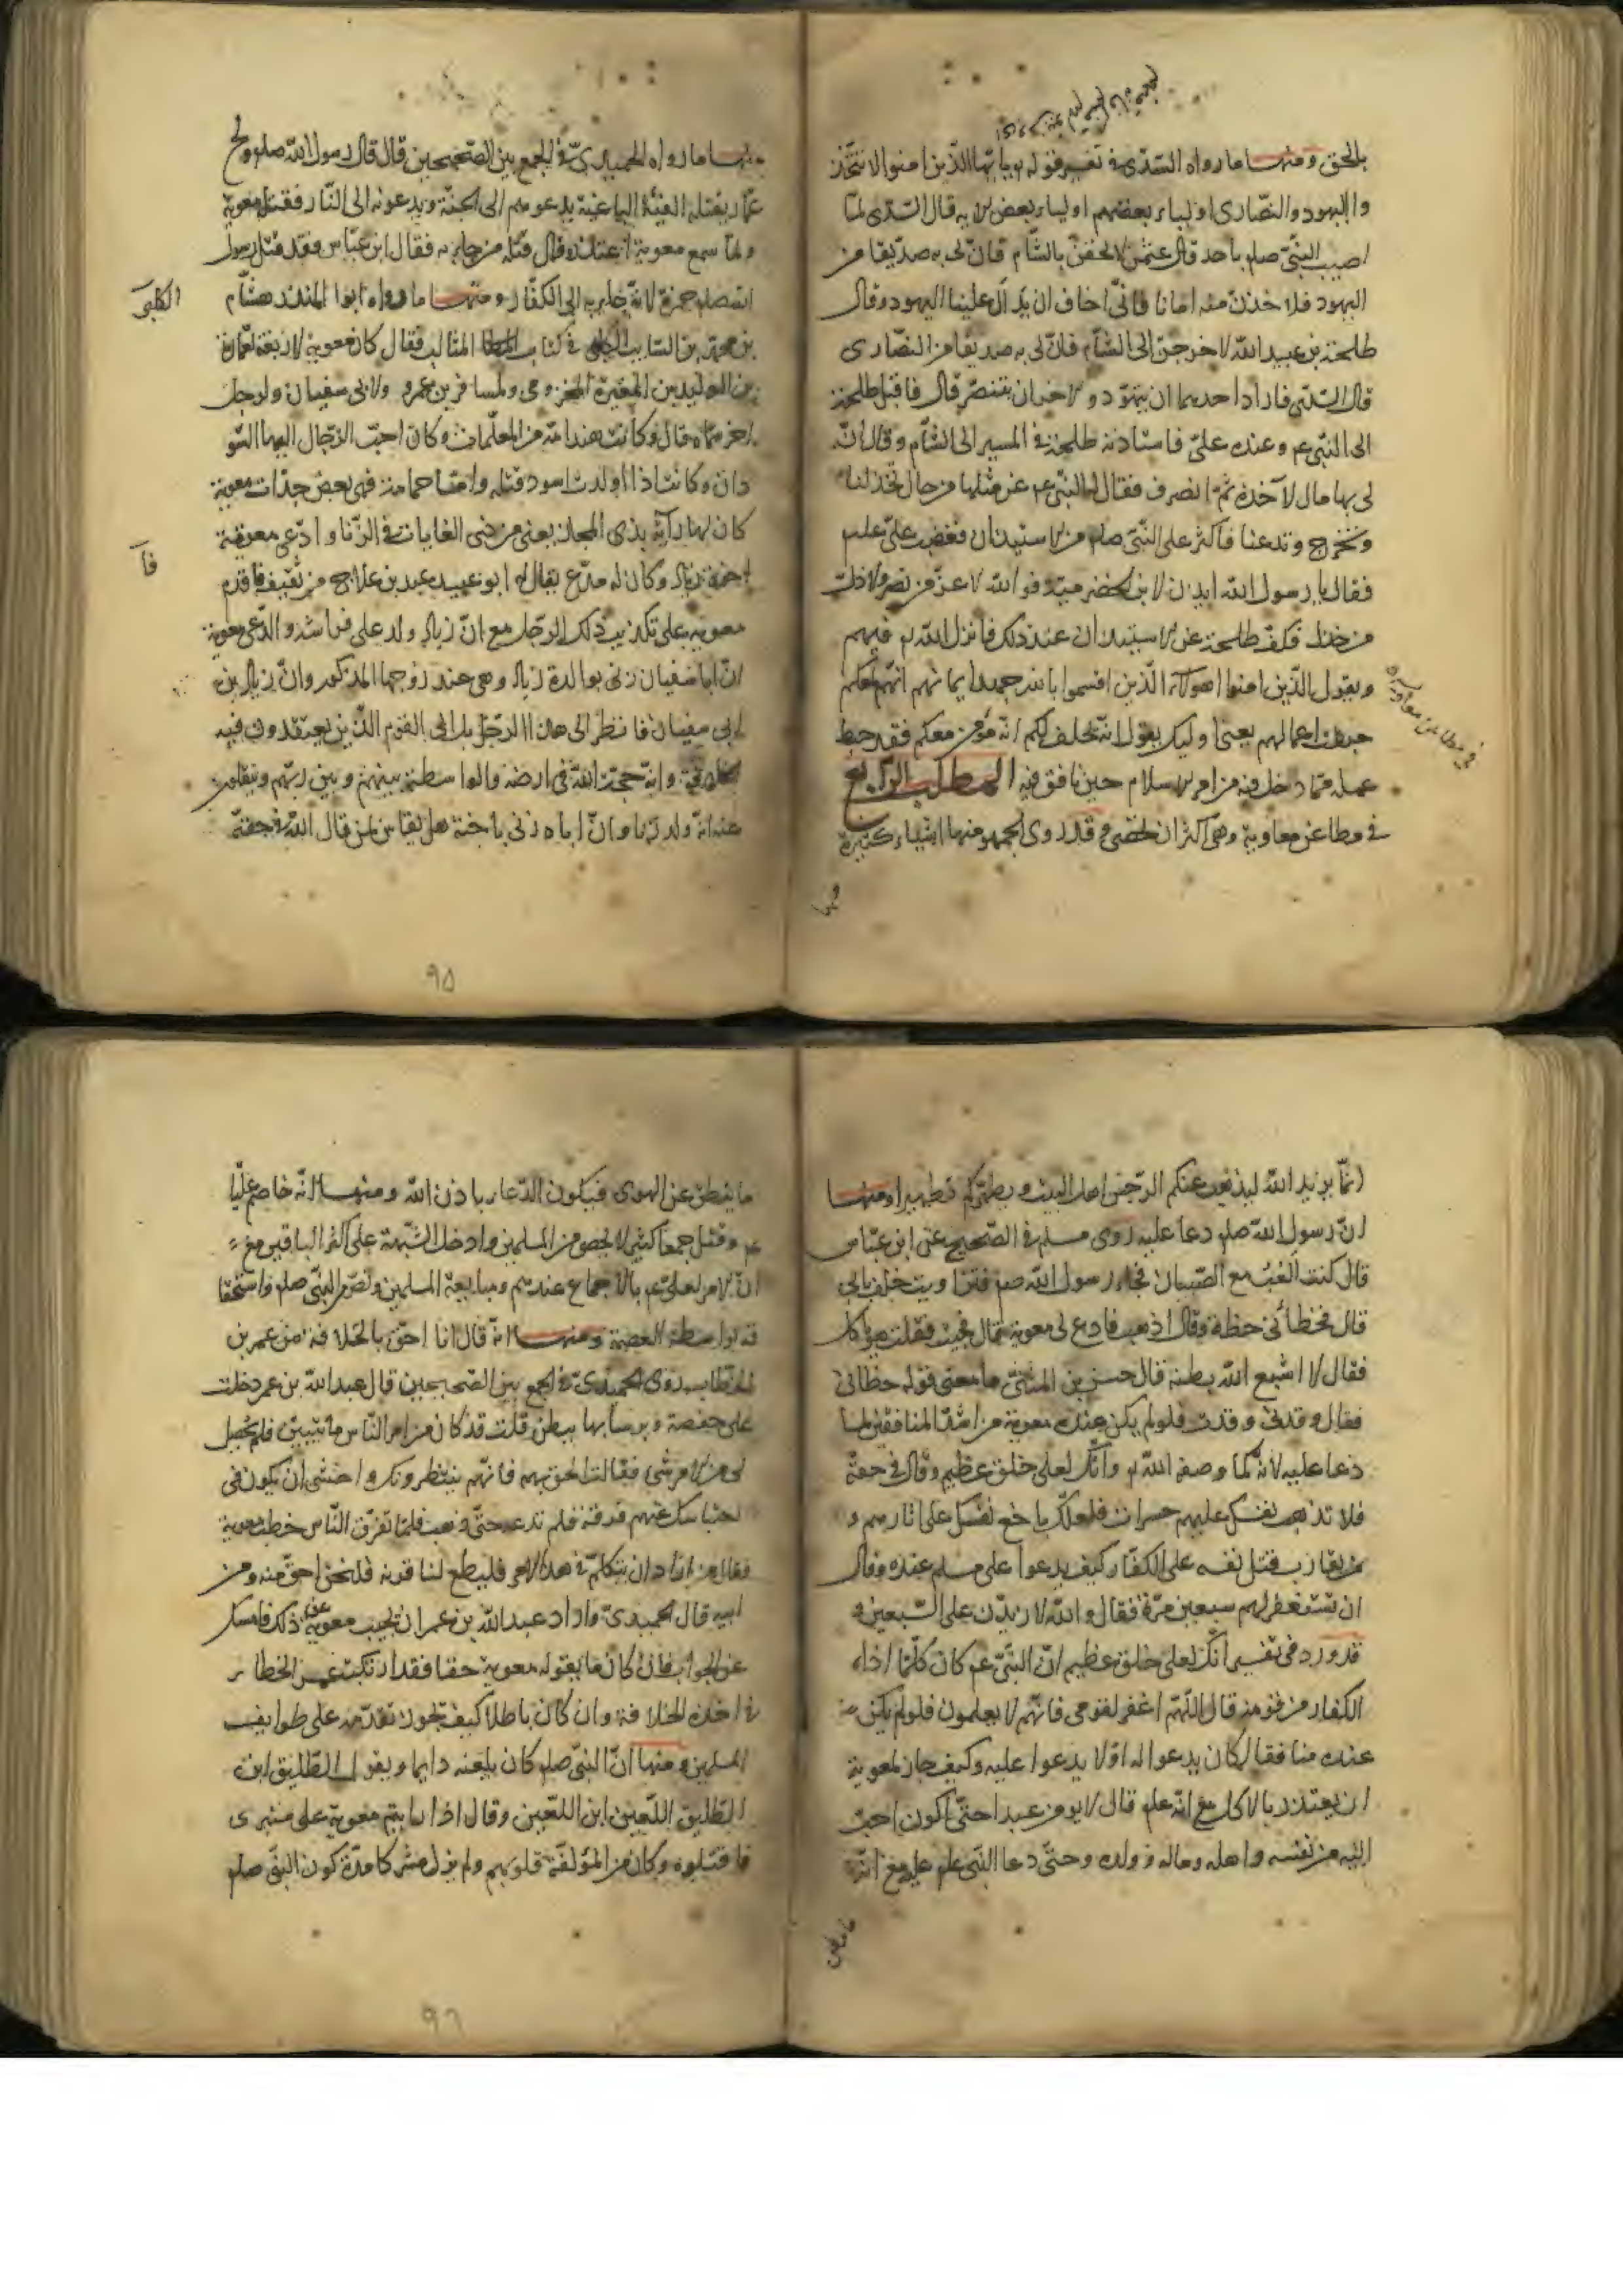 بالحق ومنها ما رواه السدّى فى تفسير قوله تع يا ايها الذين امنوا لا تتخذ
وا اليهود والنصارى اولياء بعضهم اولياء بعض الاية قال السدى لما
اصيب النبى صلعم باحد قال عثمن لالحقن بالشام فان لى به صديقا من
اليهود فلاخذن منه امانا فانى اخاف ان يدال علينا اليهود وقال
طلحة بن عبيد الله لاخرجن الى الشام فان لى به صديقا من النصارى
قال السدى فاراد احدهما ان يتهود والاخر ان يتنصر قال فاقبل طلحة
الى النبى عم وعنده على فاستاذنه طلحة فى المسير الى الشام وقال انّ
لى بها مال لاخذه ثم انصرف فقال له النبى عم عن مثلها من حال تخذلنا
وتخرج وتدعنا فاكثر على النبى صلعم من الاستيذان فغضب على علم
فقال يا رسول الله ايذن لابن الحضرمية فو الله لا عز من نصره ولا ذل
من خذله فكف طلحة عن الاستيذان عند ذلك فانزل الله تع فيهم
ويقول الذين امنوا اهولاء الذين اقسموا بالله جهد ايمانهم انهم لمعكم
حبطت اعمالهم يعنى اولئك يقول انه يحلف لكم انه مؤمن معكم فقد حبط
عمله مما دخل فيه من امر الاسلام حين نافق فيه المطلب الرابع
فى مطاعن معاوية وهى اكثر ان تحصى وقد روى الجمهور منها اشياء كثيرة
فى مطاعن معاوية
منها
منها ما رواه الحميدى فى الجمع بين الصحيحين قال قال رسول الله صلعم ويح
عمار يقتله الفئة الباغية يدعوهم الى الجنة ويدعونه الى النار فقتله معوية
ولما سمع معوية اعتذر وقال قتله من جاء به فقال ابن عباس فقد قتل رسول
الله صلعم حمزة لانه جاء به الى الكفار ومنها ما رواه ابوا المنذر هشام
بن محمد بن السايب فى كتاب المثالب فقال كان معوية لاربعة لعمارة
الكلبى
بن الوليد بن المغيرة المخزومى ولمسافر بن عمرو ولابى سفيان ولرجل
اخر سماه قال وكانت هند امه من المعلمات وكان احب الرجال اليها السو
دان وكانت اذا اولدت اسود قتلته واما حمامة فهى بعض جدات معوية
كان لها راية بذى المجاز يعنى من ذوى الغايات فى الزنا وادعى معوية
اخوة زياد وكان له مدّع يقال له ابو عبيد عبد بن علاج من ثقيف فاقدم
فا
معوية على تكذيب ذلك الرجل مع ان زياد ولد على فراشه وادعى معوية
ان ابا سفيان زنى بوالدة زياد وهى عند زوجها المذكور وان زياد بن
ابى سفيان فانظر الى هذا الرجل بل الى القوم الذين يعتقدون فيه
الخلافة وانه حجة الله فى ارضه والواسطة بينهم وبين ربهم وينقلون
عنه انه ولد زنا وان اباه زنى باخته هل يقاس لمن قال الله فى حقه
٩٥
انما يريد الله ليذهب عنكم الرجس اهل البيت ويطهركم تطهيرا ومنها
ان رسول الله صلعم دعا عليه روى مسلم فى الصحيح عن ابن عباس
قال كنت العب مع الصبيان فجاء رسول الله صلعم فتواريت خلف باب
قال فحطأنى حطة وقال اذهب فادع لى معوية قال فجئت فقلت هو ياكل
فقال لا اشبع الله بطنه قال حسن بن المثنى ما معنى قوله حطانى
فقال وقدنى وقدة فلو لم يكن عنده معوية من اشد المنافقين لما
دعا عليه لانه كما وصفه الله تع وانك لعلى خلق عظيم وقال فى حقه
فلا تذهب نفسك عليهم حسرات فلعلك باخع نفسك على اثارهم و
من يقارب قتل نفسه على الكفار كيف يدعوا على مسلم عنده وقال
ان تستغفر لهم سبعين مرة فقال والله لازيدن على السبعين و
قد ورد فى تفسير انك لعلى خلق عظيم ان النبى عم كان كلما اذاه
الكفار من قومه قال اللهم اغفر لقومى فانهم لا يعلمون فلو لم يكن
عنده منافقا لكان يدعوا له او لا يدعوا عليه وكيف جاز لمعوية
ان يعتذر بالاكل مع انه علم قال لا يومن عبد حتى اكون احب
اليه من نفسه واهله وماله وولده وحتى دعا النبى علم عليه مع انه
ما ينطق
ما ينطق عن الهوى فيكون الدعاء باذن الله ومنها انه خاصم عليّا
عم وقتل جمعا كثيرا لا يحصى من المسلمين وادخل الشبهة على اكثر الباقين مع
ان الامر لعلى عم بالاجماع عندهم ومبايعة المسلمين ونص النبى صلعم واستحقا
قه بواسطة العصمة ومنها انه قال انا احق بالخلافة من عمر بن
الخطاب روى الحميدى فى الجمع بين الصحيحين قال عبد الله بن عمر دخلت
على حفصة ونوساتها تنطف قلت قد كان من امر الناس ما تبيين فلم يحصل
لى من الامر شى فقالت الحق بهم فانهم ينتظرونك واخشى ان يكون فى
احتباسك عنهم فرقة فلم تدعه حتى ذهب فلما تفرق الناس خطب معوية
فقال من اراد ان يتكلم فى هذا الامر فليطلع لنا قرنه فلنحن احق منه ومن
ابيه قال الحميدى واراد عبد الله بن عمر ان يجيب معوية عن ذلك فامسك
عن الجواب فان كان ما يقوله معوية حقا فقد ارتكب عمر الخطاء
فى اخذه الخلافة وان كان باطلا كيف يجوز تقديمه على طوايف
المسلمين ومنها ان النبى صلعم كان يلعنه دايما ويقول الطليق ابن
الطليق اللعين ابن اللعين وقال اذا رايتم معوية على منبرى
فاقتلوه وكان من المؤلفة قلوبهم ولم يزل مشركا مدة كون النبى صلعم
٩٦